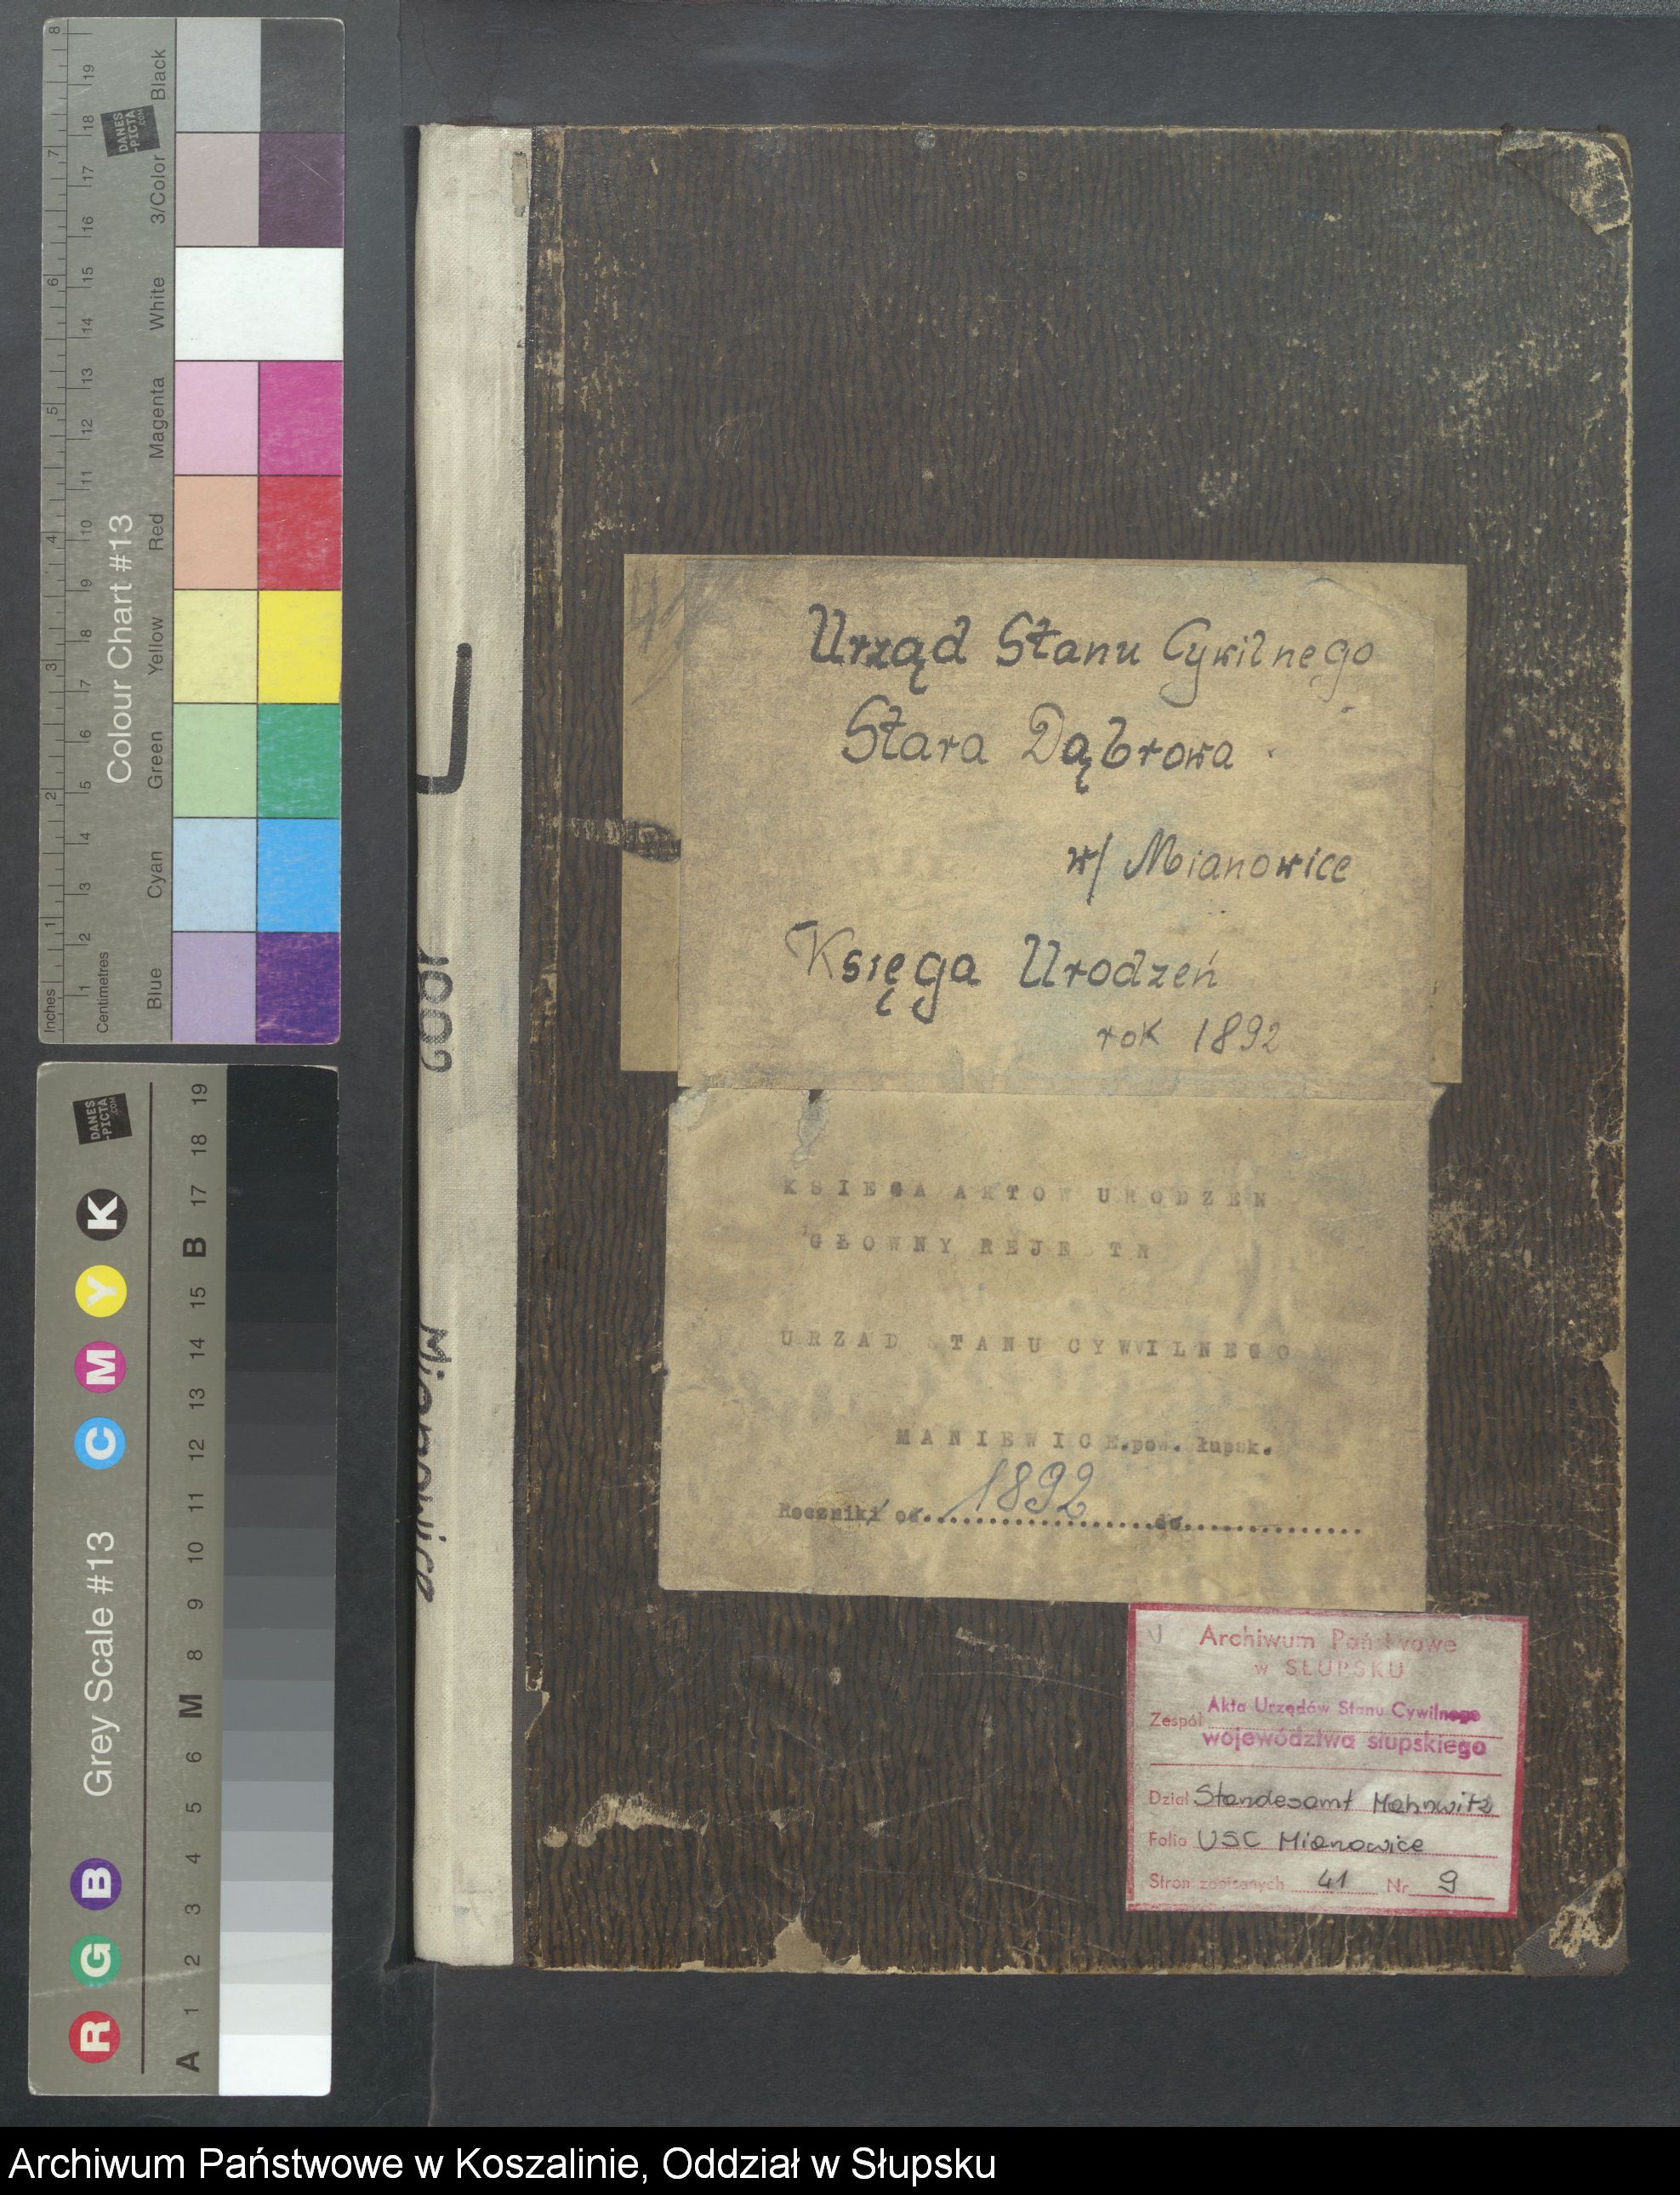 Urząd Stanu Cywilnego
Stara Dąbrowa
w/ Mianowice
Księga Urodzeń
rok 1892
KSIEGA AKTOW URODZEN
GŁOWNY REJE TR
URZAD TANU CYWILNEGO
MANIEWICE.pow. łupsk.
Roczniki od 1892 do
U 1892 Mianowice
Archiwum Państwowe
w SŁUPSKU
Zespół Akta Urzędów Stanu Cywilnego
województwa słupskiego
Dział Standesamt Mahnwitz
Folio USC Mianowice
Stron zapisanych 41 Nr 9
Colour Chart #13
Inches 1 2 3 4 5 6 7 8
Centimetres 1 2 3 4 5 6 7 8 9 10 11 12 13 14 15 16 17 18 19
Blue Cyan Green Yellow Red Magenta White 3/Color Black
DANES
-PICTA
.COM
Grey Scale #13
R G B C M Y K
DANES
-PICTA
.COM
A 1 2 3 4 5 6 M 8 9 10 11 12 13 14 15 B 17 18 19
Archiwum Państwowe w Koszalinie, Oddział w Słupsku